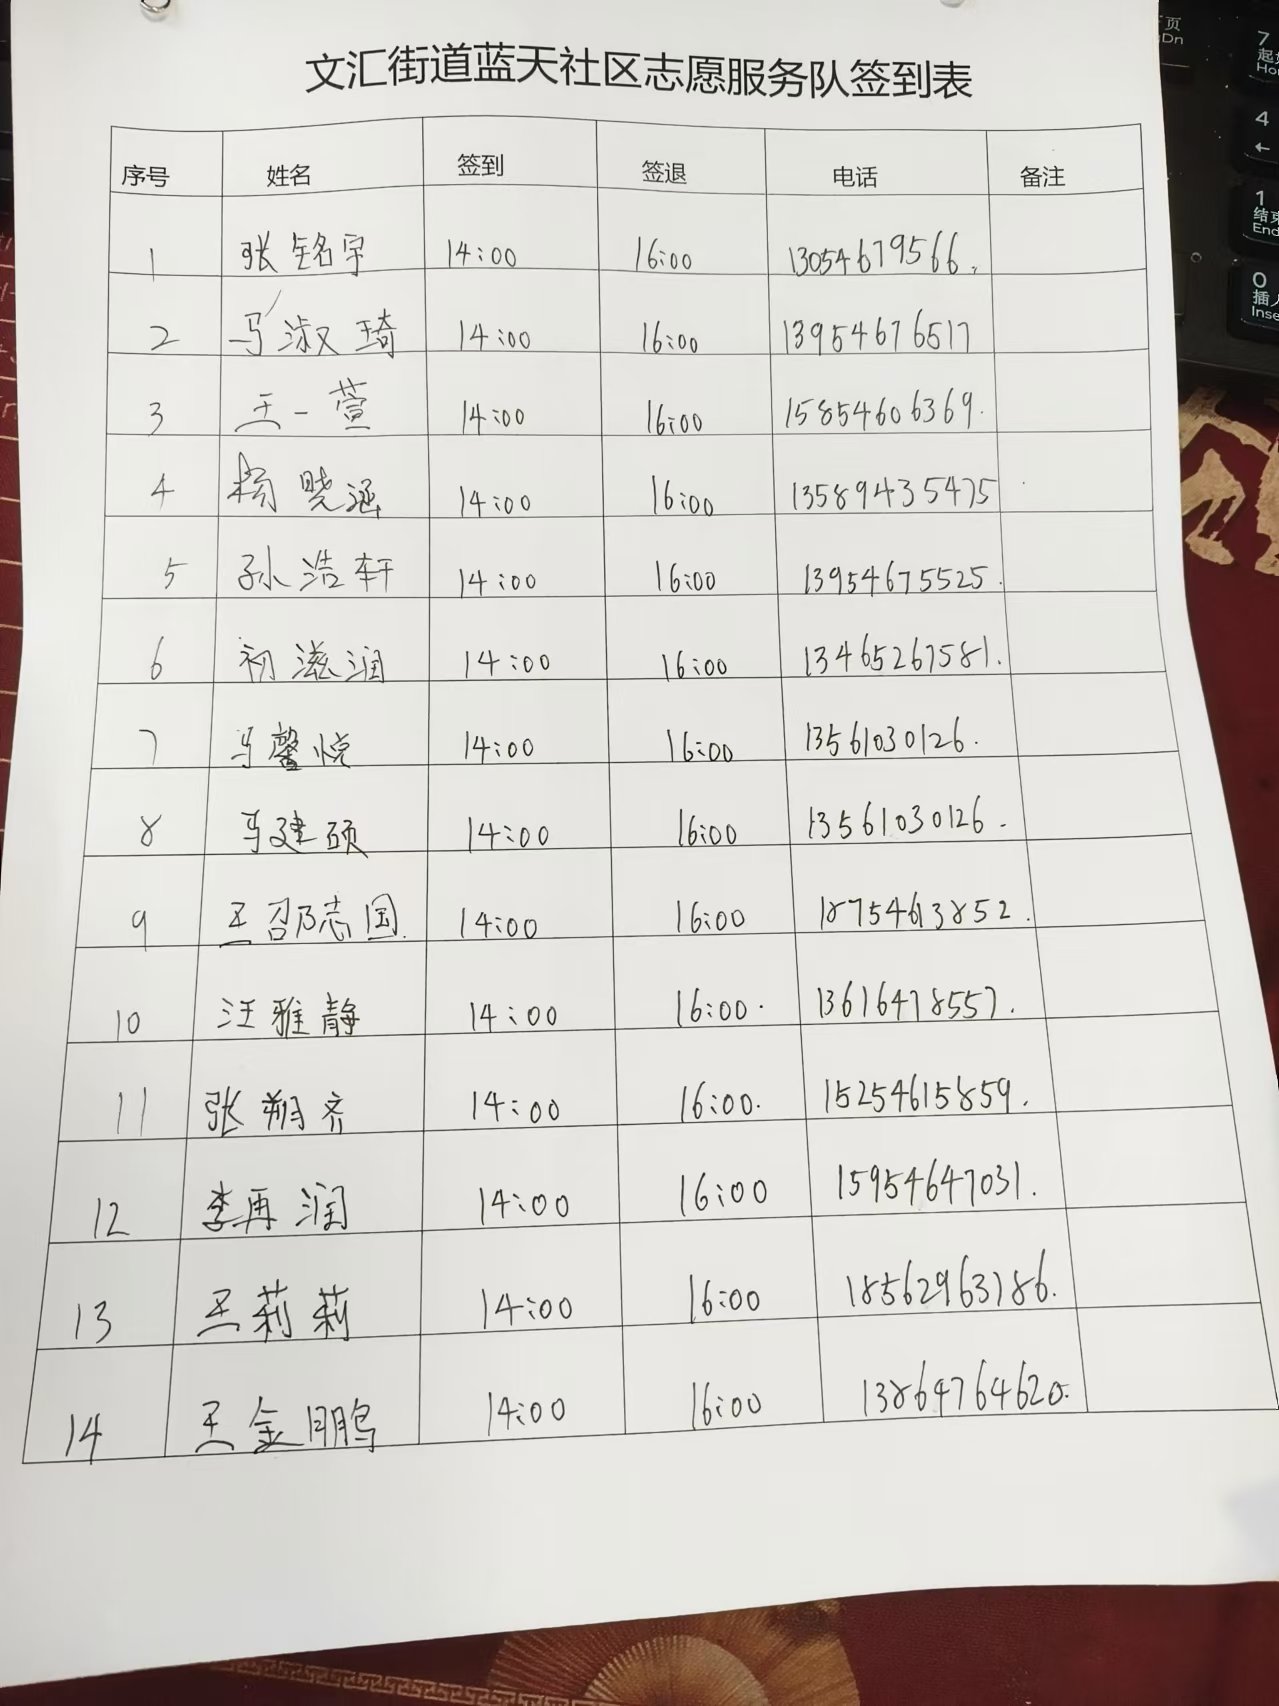 文汇街道蓝天社区志愿服务队签到表
序号 姓名 签到 签退 电话 备注
1 张铭宇 14:00 16:00 13054679566.
2 马淑琦 14:00 16:00 13954676517
3 王一萱 14:00 16:00 15854606369.
4 杨晓涵 14:00 16:00 13589435475
5 孙浩轩 14:00 16:00 13954675525.
6 初滋润 14:00 16:00 13465267581.
7 马馨悦 14:00 16:00 13561030126.
8 马建硕 14:00 16:00 13561030126.
9 王召志国. 14:00 16:00 18754613852.
10 汪雅静 14:00 16:00. 13616478557.
11 张翔齐 14:00 16:00. 15254615859.
12 李再润 14:00 16:00 15954647031.
13 王莉莉 14:00 16:00 18562963786.
14 王金鹏 14:00 16:00 13864764620.
7
4
←
1
结束
End
0